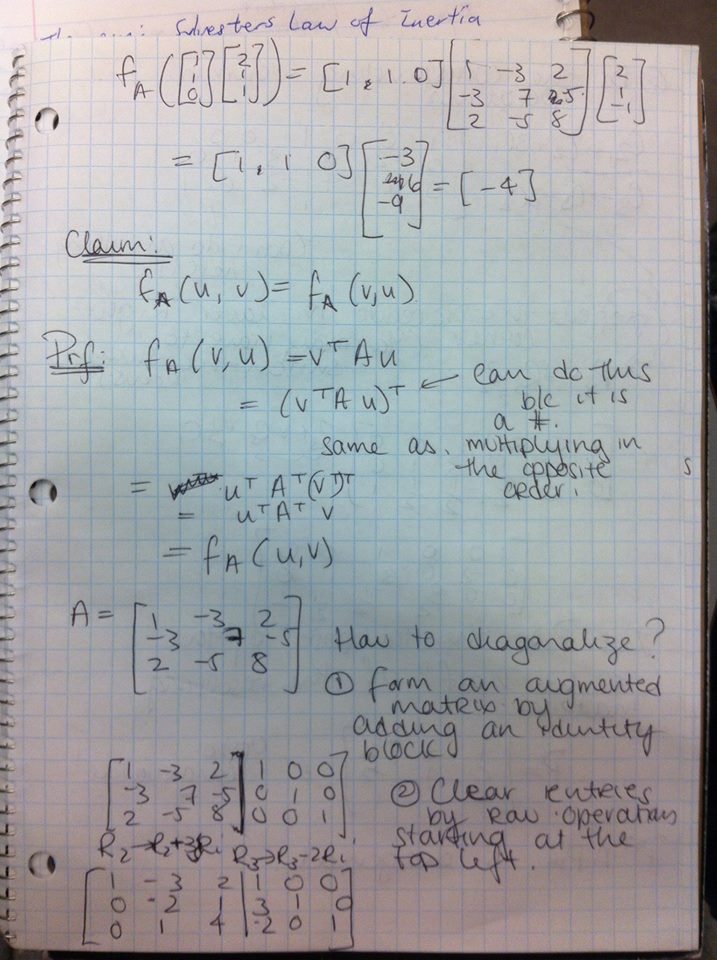 Sylvesters Law of Inertia
f_A([1 1 0] [2 1 1]) = [1, 1 0] [1 -3 2; -3 7 -5; 2 -5 8] [2 1 -1]
= [1, 1 0] [-3 6 -9] = [-4]
Claim:
f_A(u, v) = f_A(v,u)
Prf: f_A(v,u) = v^T A u
= (v^T A u)^T ← can do this
b/c it is
a #.
same as multiplying in
the opposite
order.
= u^T A^T (v^T)^T
= u^T A^T v
= f_A(u,v)
A = [1 -3 2; -3 7 -5; 2 -5 8]
How to diagonalize?
① form an augmented
matrix by
adding an identity
block
[1 -3 2 | 1 0 0
-3 7 -5 | 0 1 0
2 -5 8 | 0 0 1]
② Clear entries
by row operations
starting at the
top left.
R2→R2+3R1 R3→R3-2R1
[1 -3 2 | 1 0 0
0 -2 1 | 3 1 0
0 1 4 | -2 0 1]